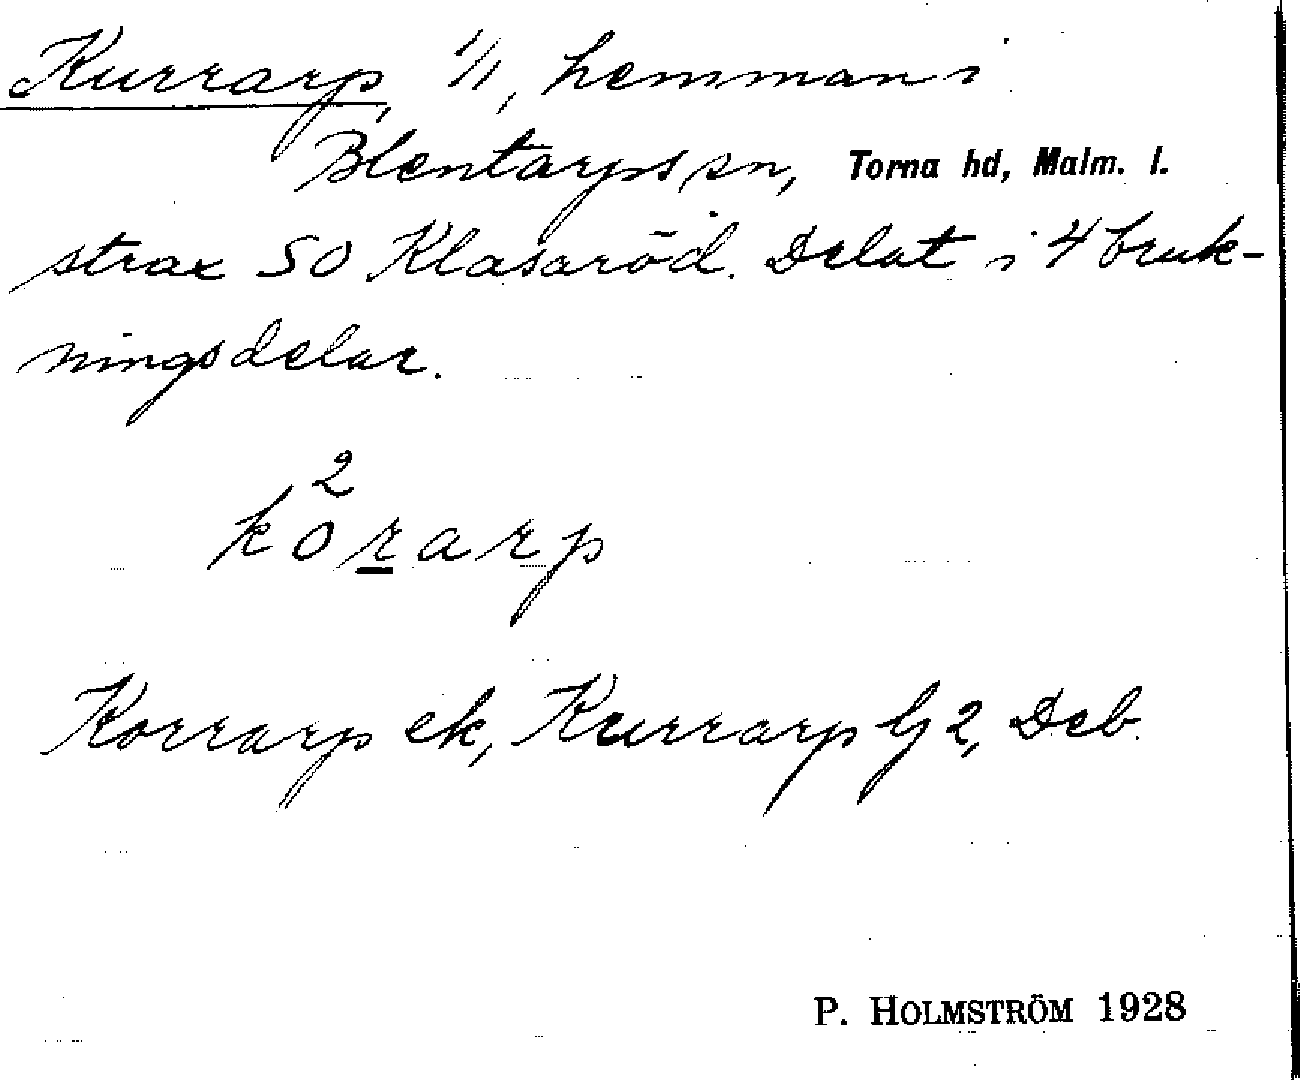 Kurrarp, 1/1, hemman i
Blentarps sn, Torna hd, Malm. l.
strax SO Klasaröd. Delat i 4 bruk-
ningsdelar.
2
korarp
Korrarp ek, Kurrarp lj 2, Deb.
P. HOLMSTRÖM 1928